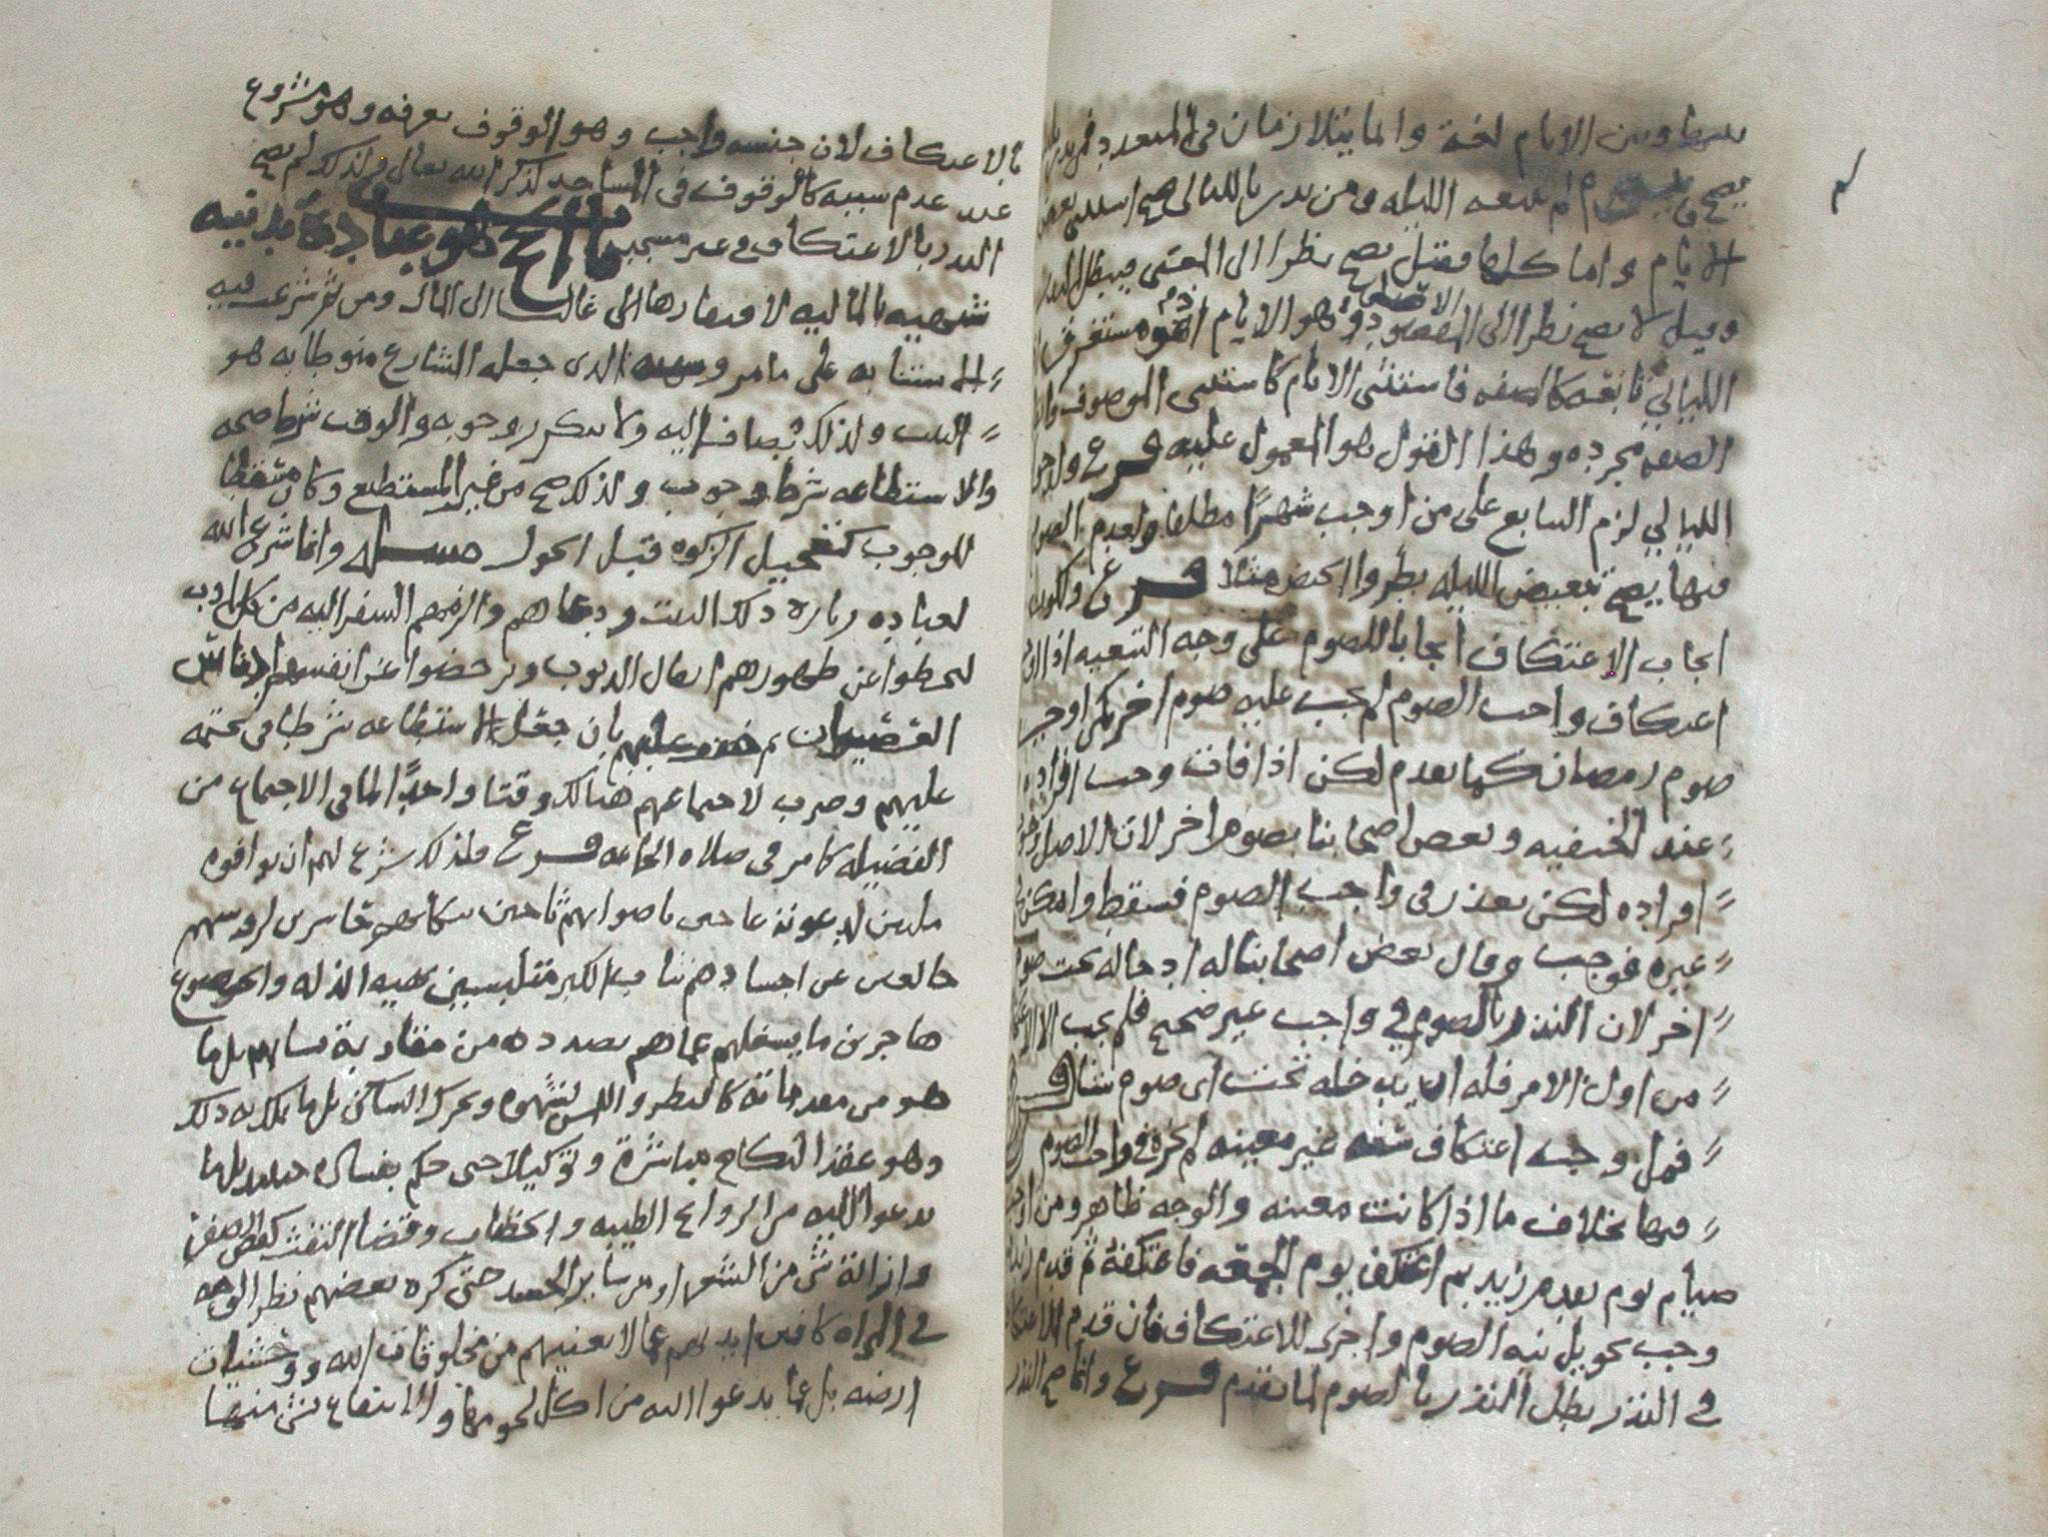 بينها وبين الايام لغة وانما يتلازمان في المتعدد فمن نذر
يصح ولم تتبعه الليله ومن نذر بالليالي صح استثنى بعض
الايام واما كلها فقيل يصح نظرا الى المعنى فيبطل النذر
وقيل لا يصح نظرا الى المقصود وهو الايام اذ هو مستغرق
الليالي تابعه كالصفه فاستثنى الايام كاستثنى الموصوف
الصفه مجرده وهذا القول هو المعمول عليه فرع
الليالي لزم التتابع على من اوجب شهرًا مطلقا ولعدم
فيها يصح تبعيض الليله بطروا الحيض مثلا فرع
ايجاب الاعتكاف ايجابا للصوم على وجه التبعيه اذا
اعتكاف واجب الصوم لم يجب عليه صوم اخر كمن اوجب
صوم رمضان كما تقدم لكن اذا فات وجب افراده
عند الحنفيه وبعض اصحابنا بصوم اخر لان الاصل
افراده لكن تعذر في واجب الصوم فسقط وامكن
غيره فوجب وقال بعض اصحابنا له ادخاله تحت صوم
اخر لان النذر بالصوم في واجب غير صحيح فلم يجب الا
من اول الامر فله ان يدخله تحت اي صوم شا فرع
فمن اوجب اعتكاف سنه غير معينه لم يجزه واجب الصوم
فيها بخلاف ما اذا كانت معينه والوجه ظاهر ومن
صيام يوم يقدم زيد ثم اعتكف يوم الجمعه فاعتكفه ثم قدم زيد
وجب تحويل نيه الصوم واجزى للاعتكاف فان قدم
في النذر بطل النذر بالصوم لما تقدم فرع وانما صح النذر
بالاعتكاف لان جنسه واجب وهو الوقوف بعرفه وهو مشروع
عند عدم سببه كالوقوف في المساجد لذكر الله تعالى ولذلك لم يصح
النذر بالاعتكاف في غير مسجد باب الحج هو عبادة بدنيه
شبيهه بالماليه لافتقارها الى غالبا الى المال ومن ثم شرعت فيه
الاستنابه على ما مر وسببه الذي جعله الشارع منوطا به هو
البيت ولذلك يضاف اليه ولا يتكرر وجوبه والوقت شرط صحه
والاستطاعه شرط وجوب ولذلك صح من غير المستطيع وكان مسقطا
للوجوب كتعجيل الزكوه قبل الحول مسئله وانما شرع الله
لعباده زياره ذلك البيت ودعاهم والزمهم السفر اليه من كل اوب
ليحطوا عن ظهورهم اثقال الذنوب ويرحضوا عن انفسهم ادناس
العصيان ثم خفف عليهم بان جعل الاستطاعه شرطا في تحتمه
عليهم وضرب لاجتماعهم هنالك وقتا واحدًا لما في الاجتماع من
الفضيله كما مر في صلاه الجماعه فرع فلذلك شرع لهم ان يوافوه
ملبين لدعوته عاجين باصواتهم حاسرين لروسهم
خالعين عن اجسادهم ثياب الكبر متلبسين بهيه الذله والخضوع
هاجرين ما يشغلهم عما هم بصدده من مقاربة نسائهم بل ما
هو من مقدماته كالنظر واللمس لشهوه وتحرك الساكن بل ما يملك به ذلك
وهو عقد النكاح مباشرة وتوكيلا حتى حكم بفساده بل ما
يدعوا اليه من الروائح الطيبه والخضاب وقضا التفث كقص
وازالة شي من الشعر او من ساير الجسد حتى كره بعضهم نظر الوجه
في المراه كافين ايديهم عما لا يعنيهم من مخلوقات الله ووحشيات
ارضه بل عما يدعوا اليه من اكل لحومها والانتفاع بشي منها